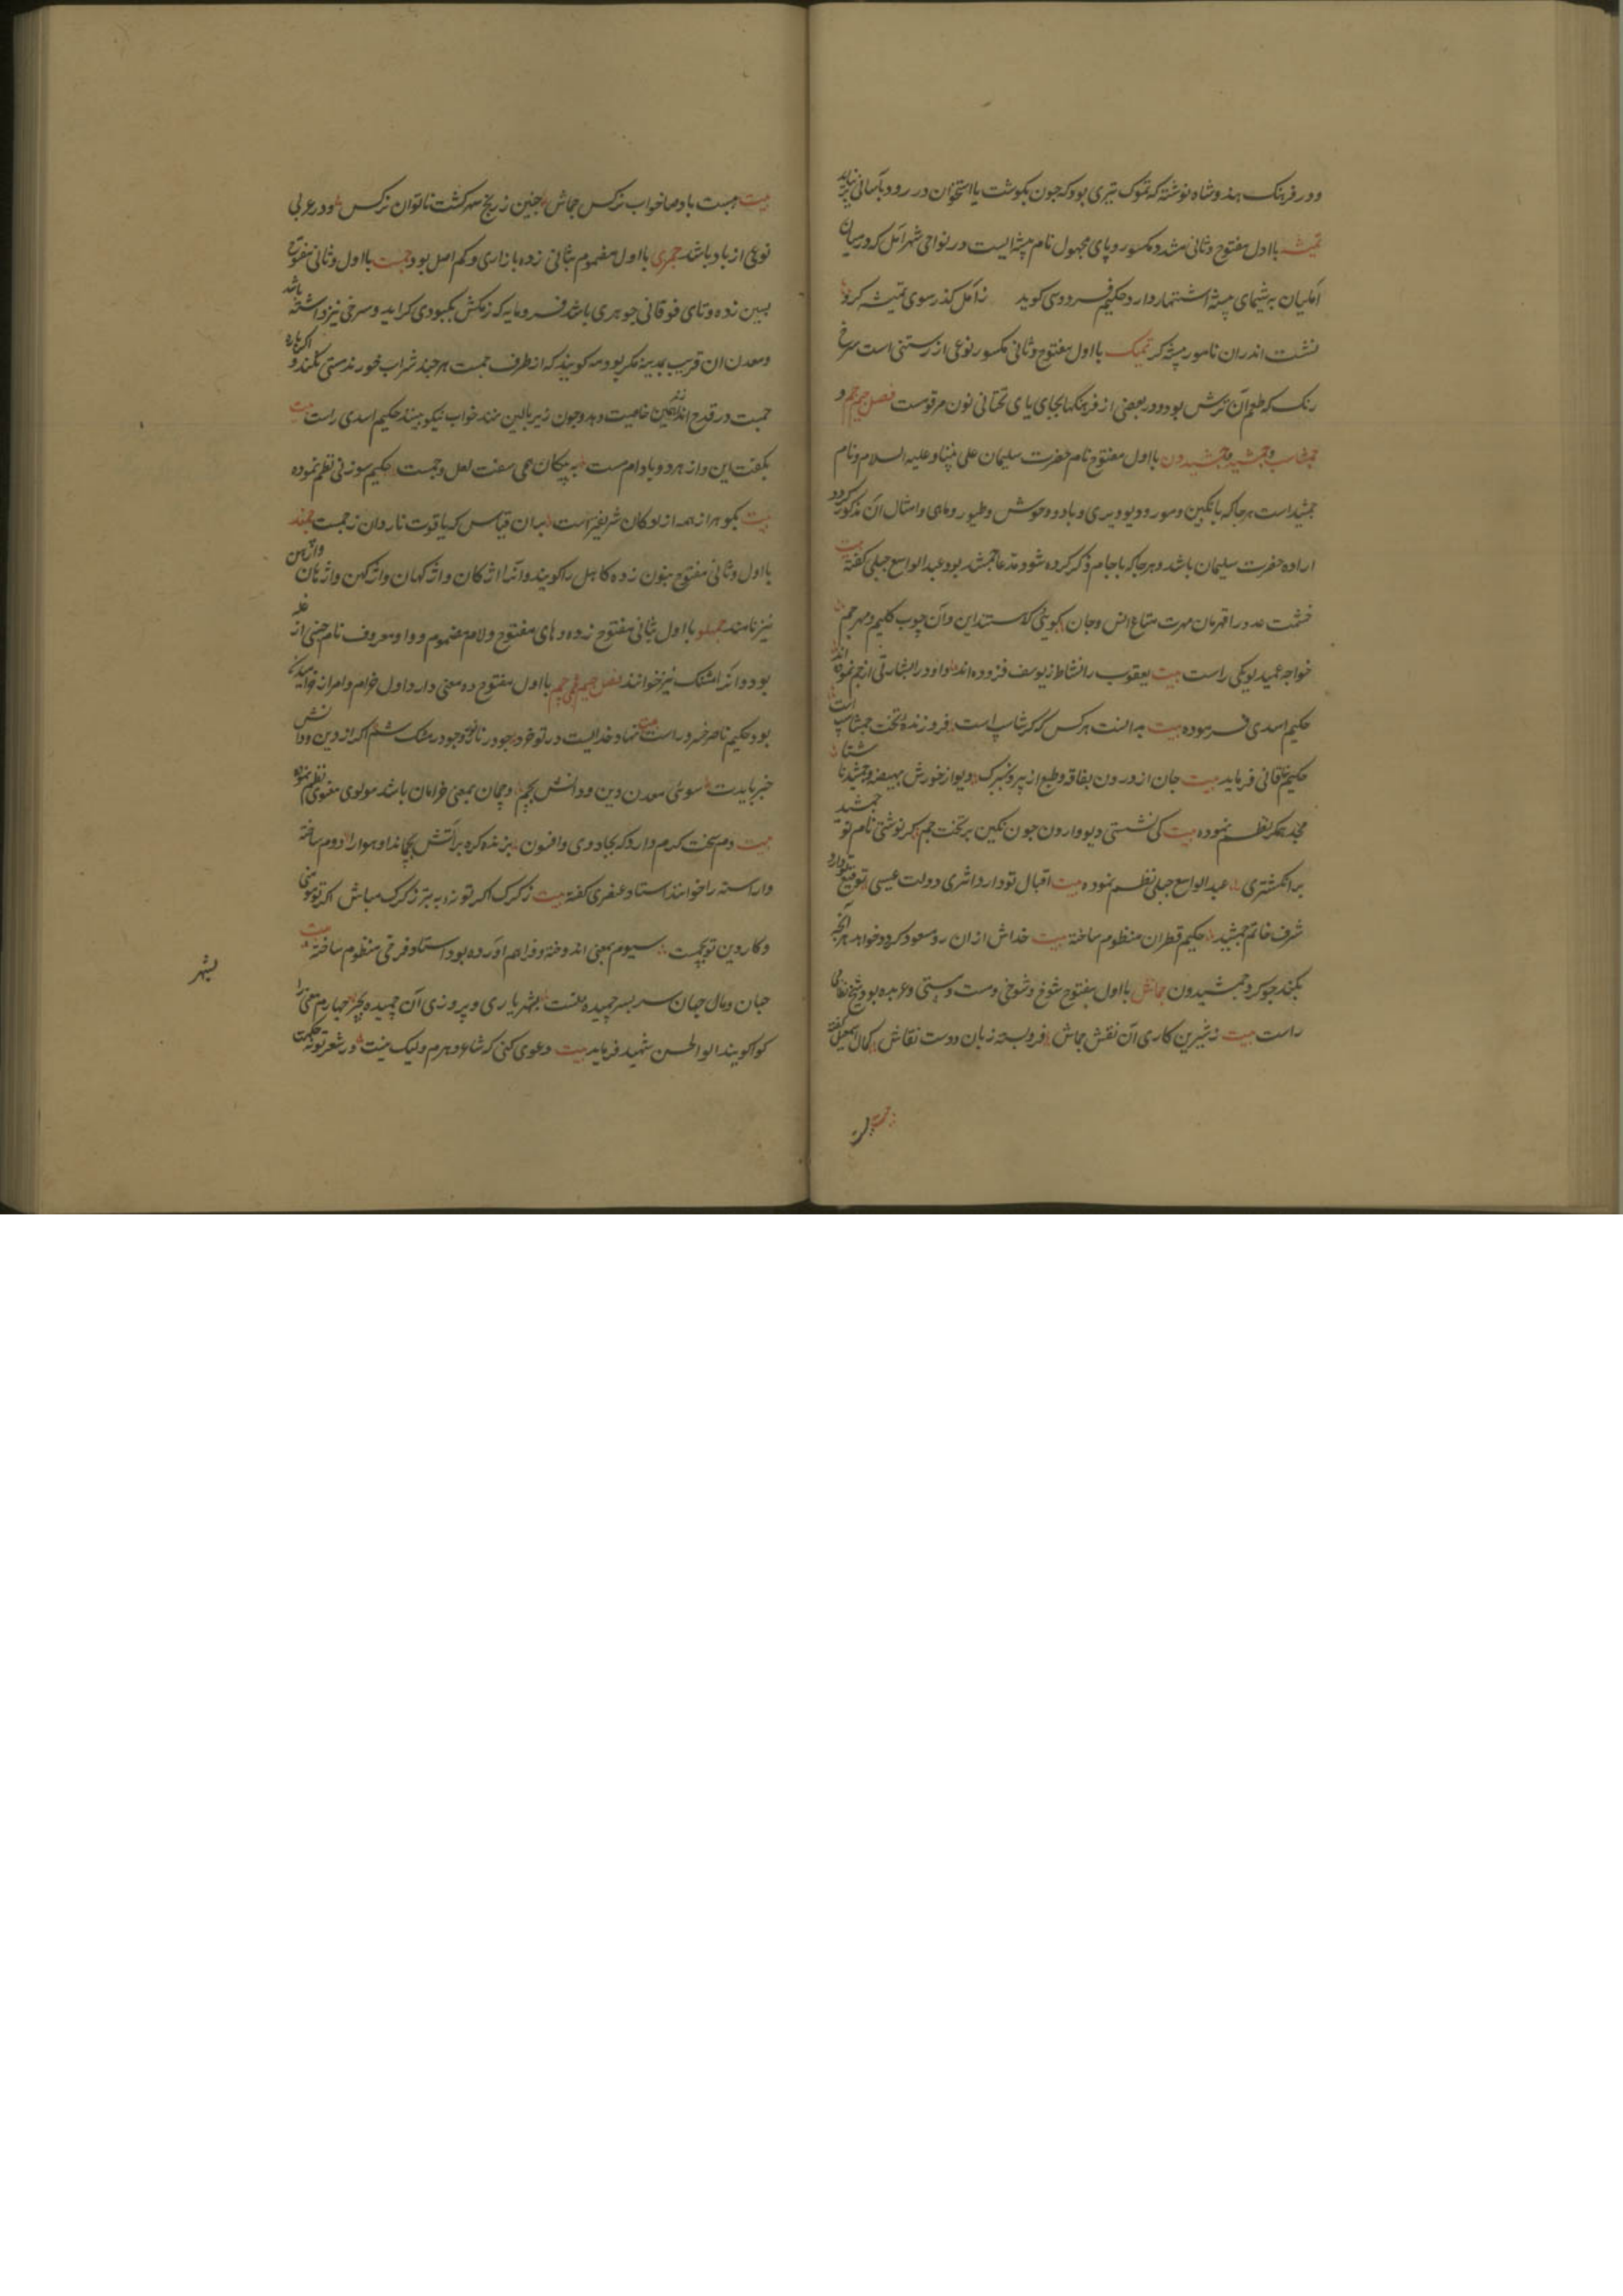 و در فرهنگ هندوشاه نوشته که تموک تیری بود که چون بگوشت یا استخوان در رود بآسانی بر نیاید
تمیشه با اول مفتوح و ثانی مشدد مکسور و یای مجهول نام بیشه ایست در نواحی شهر آمل که در میان
آملیان به شیمای بیشه اشتهار دارد حکیم فردوسی کوید ز آمل کذر سوی تمیشه کرد
نشت اندران نامور بیشه کرد تمیک با اول مفتوح و ثانی مکسور نوعی از رستنی است سرخ
رنک که طعم آن ترش بود و در بعضی از فرهنکها بجای یای تحتانی نون مرقومست فصل جیم جم و
جمشاسب و جمشید و جمشیدون با اول مفتوح نام حضرت سلیمان علی نبینا و علیه السلام و نام
جمشید است هر جا که با نکین و مور و دیو و پری و باد و وحوش و طیور و ماهی و امثال آن مذکور کردد
اراده حضرت سلیمان باشد و هر جا که با جام ذکر کرده شود مدعا جمشید بود عبدالواسع جبلی کفته بیت
خشمت عدو را قهرمان مهرت متاع انس و جان کویئی که هستند این و آن چوب کلیم و مهر جم
خواجه عمید لویکی راست بیت یعقوب را نشاط ز یوسف فزوده اند داود را بشارتی از جم نموده اند
حکیم اسدی فرموده بیت بدانست هر کس که کرشاسپ است فروزنده تخت جمشاسپ است
حکیم خاقانی فرماید بیت جان از درون بفاقه و طبع از برون ببرک دیو از خورش بهیضه و جمشید ناشتا
مجد همکر نظم نموده بیت کی نشستی دیو وارون چون نکین بر تخت جم کر نوشتی نام تو جمشید
بر انکشتری عبدالواسع جبلی نظم نموده بیت اقبال تو دارد اثری دولت عیسی توقیع تو دارد
شرف خاتم جمشید حکیم قطران منظوم ساخته بیت خداش از ان رو مسعود کرد و خواهد هر آنچه
بکند جو کرد جمشیدون جماش با اول مفتوح شوخ و شوخی و مست و مستی و عربده بود شیخ نظامی
راست بیت ز شیرین کاری آن نقش جماش فرو بسته زبان دوست نقاش کمال اسمعیل کفته
بیت
بیت هست باد صبا خواب نرکس جماش چنین ز رنج سهر کشت ناتوان نرکس و در عربی
نوعی از باد باشد جمری با اول مضموم بثانی زده بازاری و کم اصل بود جمست با اول و ثانی مفتوح
بسین زده و تای فوقانی جوهری باشد فرومایه که رنکش بکبودی کراید و سرخی نیز داشته باشد
و معدن آن قریب بمدینه مکرمه بود و مه کویند که از ظرف جمست هر چند شراب خورند مستی نکند و اکر پاره
جمست در قدح اندازند همین خاصیت دهد و چون زیر بالین نهند خواب نیکو بینند حکیم اسدی راست بیت
بکفت این و از هر دو بادام مست به پیکان همی سفت لعل و جمست حکیم سوزنی نظم نموده
بیت بکوهر از همه آزادکان شریفتر است بدان قیاس که یاقوت ناردان ز جمست جمند
با اول و ثانی مفتوح بنون زده کاهل را کویند و آنرا اژکان و اژکهان و اژکهن و اژهان و اژهن
نیز نامند جمهلو با اول بثانی مفتوح زده و های مفتوح و لام مضموم و واو معروف نام جنسی از غله
بود و آنرا مشنک نیز خوانند فصل جیم فارسی چم با اول مفتوح ده معنی دارد اول خرام و امر از خرامیدن
بود حکیم ناصر خسرو راست بیت نهاد خدایست در تو خرد چو در نار نور و چو در مشک شم اکر از دین و دانش
خبر بایدت سوئی معدن دین و دانش بچم و چمان بمعنی خرامان باشد مولوی معنوی نظم نموده
بیت دم سخت کرم دارد که بجادوی و افسون بزند کره بر آتش بچماند او هوا را دوم ساخته
و آراسته را خوانند استاد عنصری کفته بیت ز کرک اکر تو نه بتر ز کرک مباش اکر تو مومنی
و کار دین تو بچمست سیوم بمعنی اندوخته و فراهم آورده بود استاد فرخی منظوم ساخته بیت
جهان و مال جهان سر بسر چمیده تست بشهریاری و پیروزی آن چمیده بچم چهارم معنی را
کواکویند ابو الحسن شهید فرماید بیت دعوی کنی که شاعر دهرم ولیک نیست در شعر تو نه حکمت
بشهر